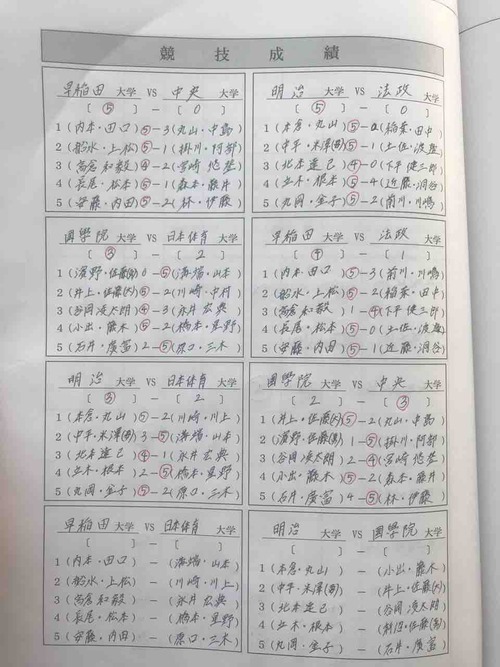 競技成績
早稲田 大学 VS 中央 大学
[ ⑤ ] - [ 0 ]
1 (内本・田口) ⑤-3 (丸山・中島)
2 (船水・上松) ⑤-1 (掛川・阿部)
3 (高倉和毅) ④-2 (宮崎)
4 (長尾・松本) ⑤-1 (森本・藤井)
5 (安藤・内田) ⑤-2 (林・伊藤)
明治 大学 VS 法政 大学
[ ⑤ ] - [ 0 ]
1 (本倉・丸山) ⑤-0 (稲葉・田中)
2 (中平・米澤) ⑤-1 (土佐・波塩)
3 (北本達己) ④-0 (下平健三郎)
4 (立木・根本) ⑤-4 (近藤・洞谷)
5 (丸岡・金子) ⑤-2 (前川・川嶋)
國學院 大学 VS 日本体育 大学
[ ③ ] - [ 2 ]
1 (濱野・佐藤) 0-⑤ (海端・山本)
2 (井上・佐藤) ⑤-2 (川崎・中村)
3 (谷岡凌太朗) ④-3 (永井宏典)
4 (小出・藤木) ⑤-2 (橋本・星野)
5 (石井・廣富) 2-⑤ (原口・三木)
早稲田 大学 VS 法政 大学
[ ④ ] - [ 1 ]
1 (内本・田口) ⑤-3 (前川・川嶋)
2 (船水・上松) ⑤-2 (稲葉・田中)
3 (高倉和毅) 1-④ (下平健三郎)
4 (長尾・松本) ⑤-0 (土佐・波塩)
5 (安藤・内田) ⑤-1 (近藤・洞谷)
明治 大学 VS 日本体育 大学
[ ③ ] - [ 2 ]
1 (本倉・丸山) ⑤-2 (川崎・川上)
2 (中平・米澤) 3-⑤ (海端・山本)
3 (北本達己) ④-1 (永井宏典)
4 (立木・根本) 2-⑤ (橋本・星野)
5 (丸岡・金子) ⑤-2 (原口・三木)
國學院 大学 VS 中央 大学
[ 2 ] - [ ③ ]
1 (井上・佐藤) ⑤-2 (丸山・中島)
2 (濱野・佐藤) 1-⑤ (掛川・阿部)
3 (谷岡凌太朗) 2-④ (宮崎)
4 (小出・藤木) ⑤-2 (森本・藤井)
5 (石井・廣富) 4-⑤ (林・伊藤)
早稲田 大学 VS 日本体育 大学
[ ] - [ ]
1 (内本・田口) - (海端・山本)
2 (船水・上松) - (川崎・川上)
3 (高倉和毅) - (永井宏典)
4 (長尾・松本) - (橋本・星野)
5 (安藤・内田) - (原口・三木)
明治 大学 VS 國學院 大学
[ ] - [ ]
1 (本倉・丸山) - (小出・藤木)
2 (中平・米澤) - (井上・佐藤)
3 (北本達己) - (谷岡凌太朗)
4 (立木・根本) - (佐藤)
5 (丸岡・金子) - (石井・廣富)